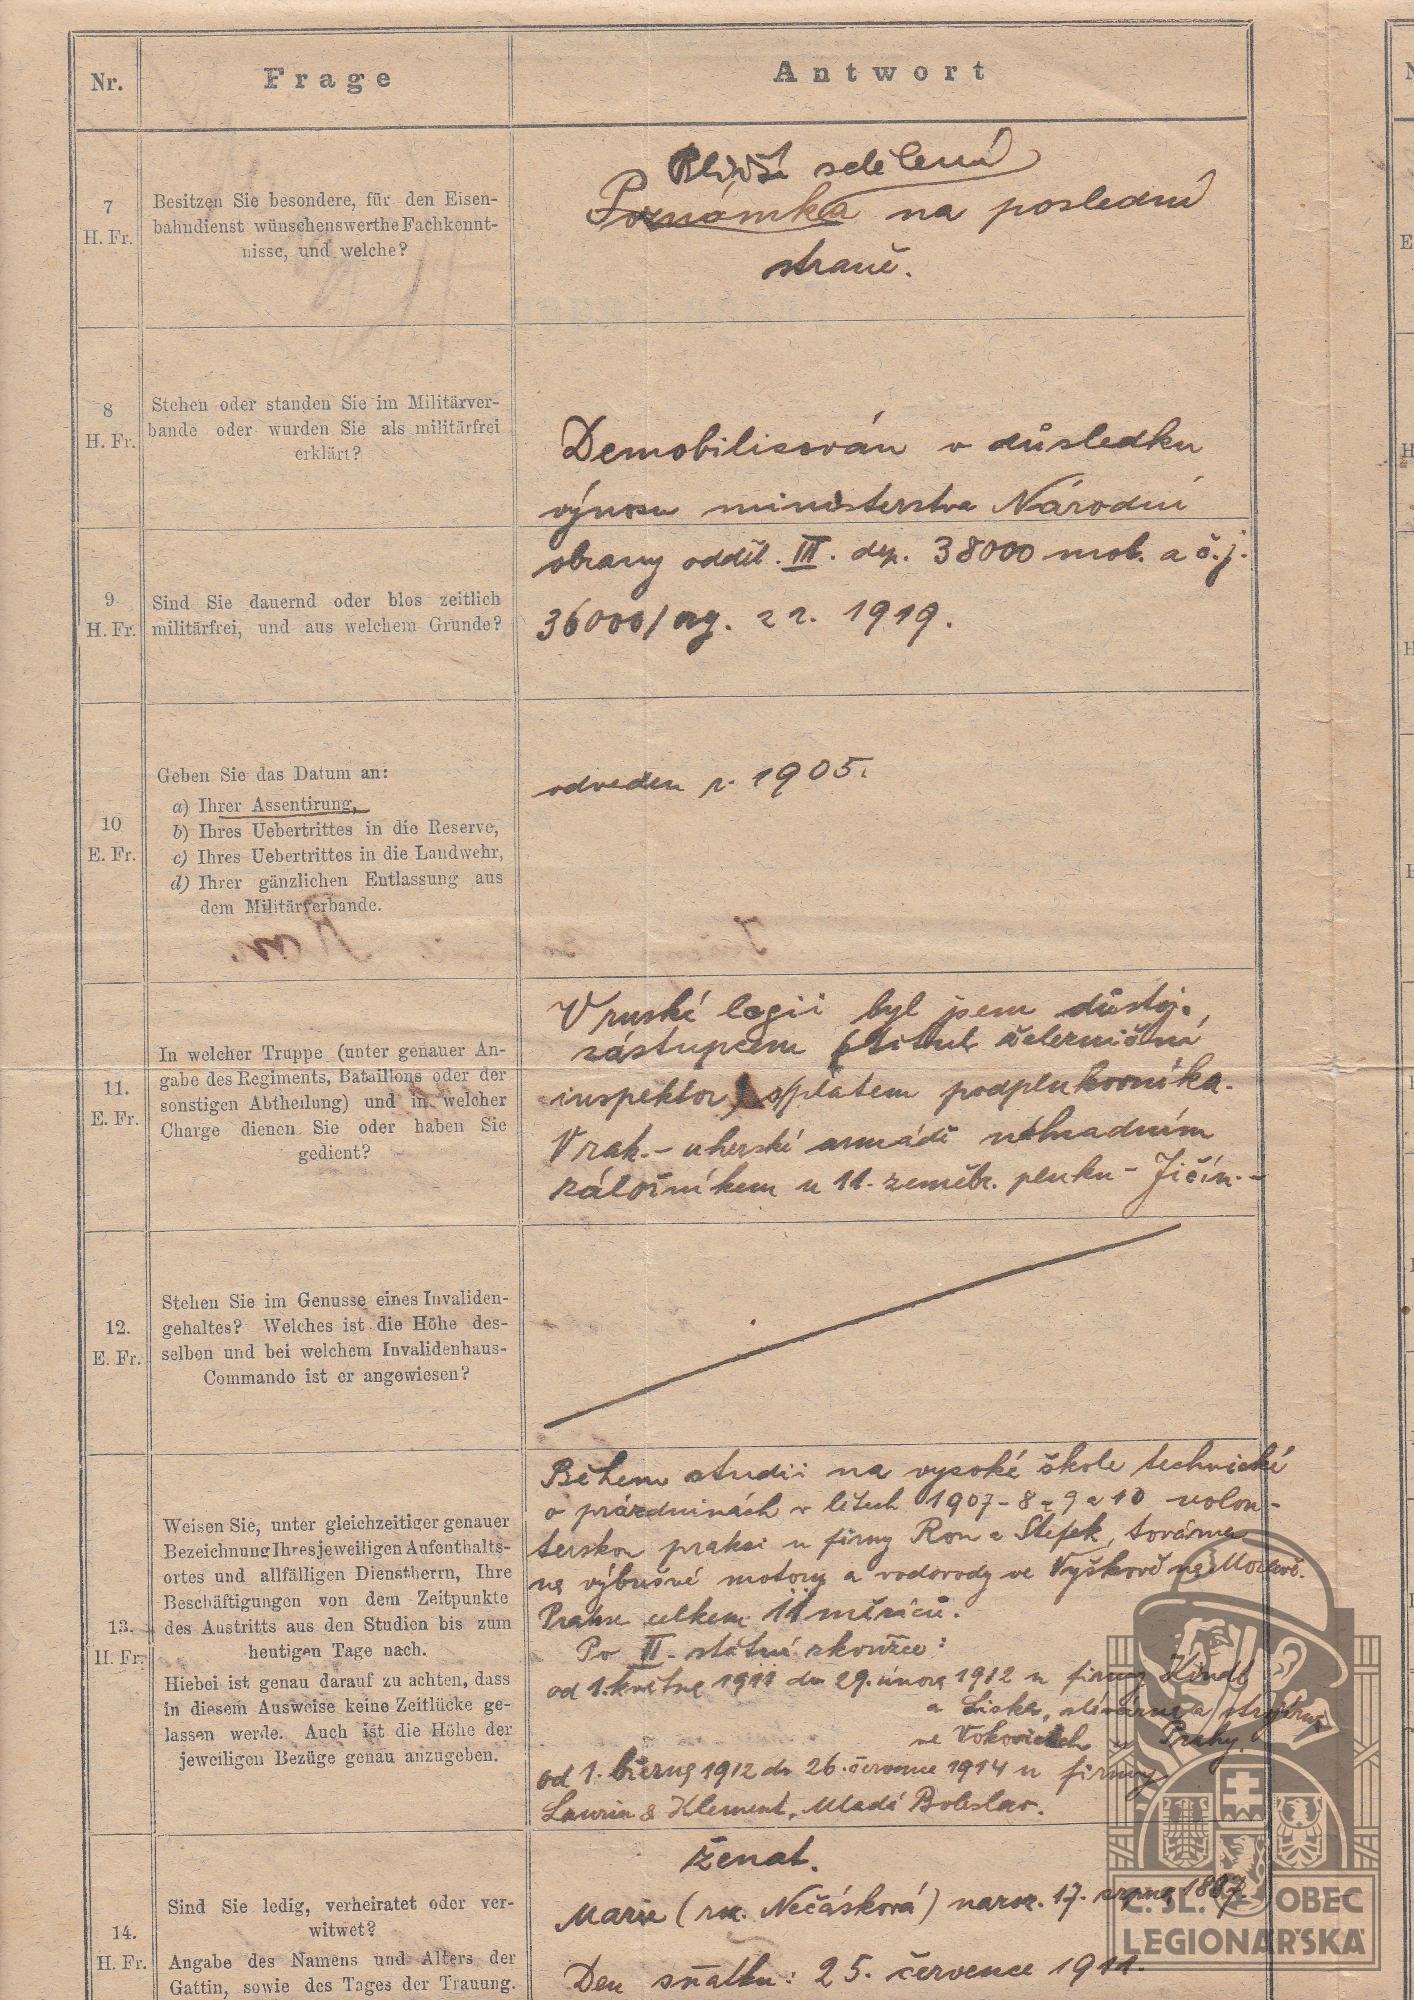 Nr.
Frage
Antwort
7
H. Fr.
Besitzen Sie besondere, für den Eisen-
bahndienst wünschenswerthe Fachkennt-
nisse, und welche?
Bližší sdělení
Poznámka na poslední
straně.
8
H. Fr.
Stehen oder standen Sie im Militärver-
bande oder wurden Sie als militärfrei
erklärt?
Demobilisován v důsledku
výnosu ministerstva Národní
obrany odděl. III. dep. 38000 mob. a č.j.
36000/org. z r. 1919.
9
H. Fr.
Sind Sie dauernd oder blos zeitlich
militärfrei, und aus welchem Grunde?
10
E. Fr.
Geben Sie das Datum an:
a) Ihrer Assentirung,
b) Ihres Uebertrittes in die Reserve,
c) Ihres Uebertrittes in die Landwehr,
d) Ihrer gänzlichen Entlassung aus
dem Militärverbande.
odveden r. 1905.
11.
E. Fr.
In welcher Truppe (unter genauer An-
gabe des Regiments, Bataillons oder der
sonstigen Abtheilung) und in welcher
Charge dienen Sie oder haben Sie
gedient?
V ruské legii byl jsem důstoj.
zástupcem (titul železniční
inspektor) s platem podplukovníka.
V rak.-uherské armádě náhradním
záložníkem u 11. zeměbr. pluku - Jičín.-
12.
E. Fr.
Stehen Sie im Genusse eines Invaliden-
gehaltes? Welches ist die Höhe des-
selben und bei welchem Invalidenhaus-
Commando ist er angewiesen?
13.
H. Fr.
Weisen Sie, unter gleichzeitiger genauer
Bezeichnung Ihres jeweiligen Aufenthalts-
ortes und allfälligen Dienstherrn, Ihre
Beschäftigungen von dem Zeitpunkte
des Austritts aus den Studien bis zum
heutigen Tage nach.
Hiebei ist genau darauf zu achten, dass
in diesem Ausweise keine Zeitlücke ge-
lassen werde. Auch ist die Höhe der
jeweiligen Bezüge genau anzugeben.
Během studii na vysoké škole technické
o prázdninách v létech 1907-8 a 9 a 10 volon-
terskou praksi u firmy Ron a Štefek, továrna
na výbušné motory a vodovody ve Vyškově na Moravě.
Prakse celkem 11 měsíců.
Po II. státní zkoušce:
od 1. května 1911 do 29. února 1912 u firmy Kindl
a Liska, slévárna a strojírna
ve Vokovicích u Prahy.
od 1. března 1912 do 26. července 1914 u firmy
Laurin & Klement, Mladá Boleslav.
14.
H. Fr.
Sind Sie ledig, verheiratet oder ver-
witwet?
Angabe des Namens und Alters der
Gattin, sowie des Tages der Trauung.
Ženat.
Marie (roz. Nečásková) naroz. 17. srpna
Den sňatku: 25. července 1911.
Č. SL. OBEC
LEGIONÁŘSKÁ